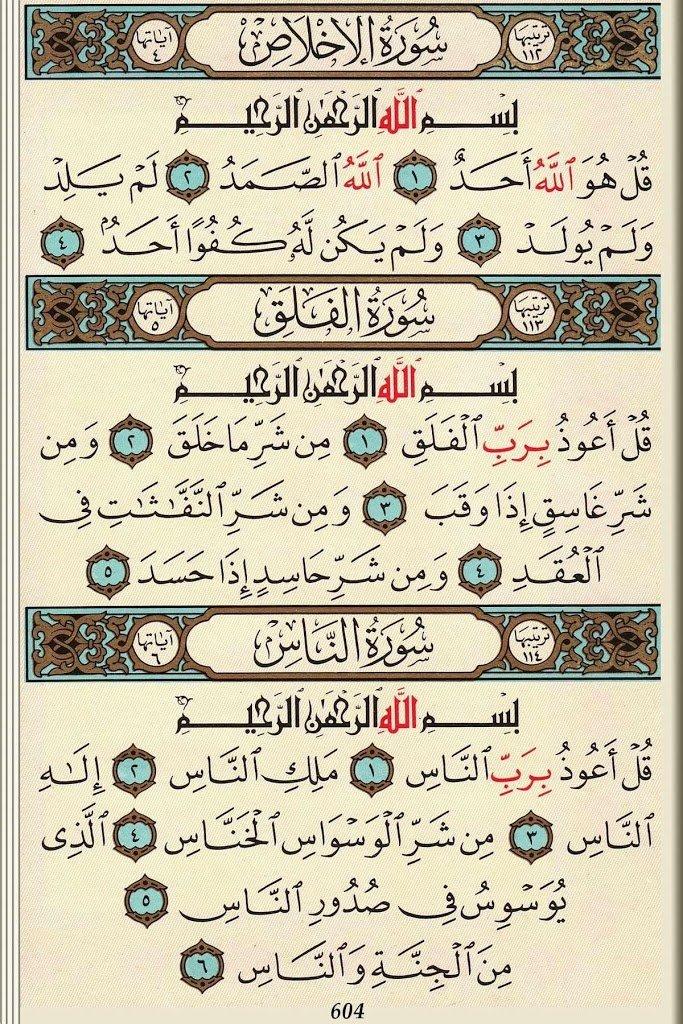 ترتيبها ١١٢ سُورَةُ الإِخْلَاصِ آياتها ٤
بِسْمِ ٱللَّهِ ٱلرَّحْمَٰنِ ٱلرَّحِيمِ
قُلْ هُوَ ٱللَّهُ أَحَدٌ ١ ٱللَّهُ ٱلصَّمَدُ ٢ لَمْ يَلِدْ
وَلَمْ يُولَدْ ٣ وَلَمْ يَكُن لَّهُۥ كُفُوًا أَحَدٌۢ ٤
ترتيبها ١١٣ سُورَةُ الفَلَقِ آياتها ٥
بِسْمِ ٱللَّهِ ٱلرَّحْمَٰنِ ٱلرَّحِيمِ
قُلْ أَعُوذُ بِرَبِّ ٱلْفَلَقِ ١ مِن شَرِّ مَا خَلَقَ ٢ وَمِن
شَرِّ غَاسِقٍ إِذَا وَقَبَ ٣ وَمِن شَرِّ ٱلنَّفَّٰثَٰتِ فِى
ٱلْعُقَدِ ٤ وَمِن شَرِّ حَاسِدٍ إِذَا حَسَدَ ٥
ترتيبها ١١٤ سُورَةُ النَّاسِ آياتها ٦
بِسْمِ ٱللَّهِ ٱلرَّحْمَٰنِ ٱلرَّحِيمِ
قُلْ أَعُوذُ بِرَبِّ ٱلنَّاسِ ١ مَلِكِ ٱلنَّاسِ ٢ إِلَٰهِ
ٱلنَّاسِ ٣ مِن شَرِّ ٱلْوَسْوَاسِ ٱلْخَنَّاسِ ٤ ٱلَّذِى
يُوَسْوِسُ فِى صُدُورِ ٱلنَّاسِ ٥
مِنَ ٱلْجِنَّةِ وَٱلنَّاسِ ٦
604